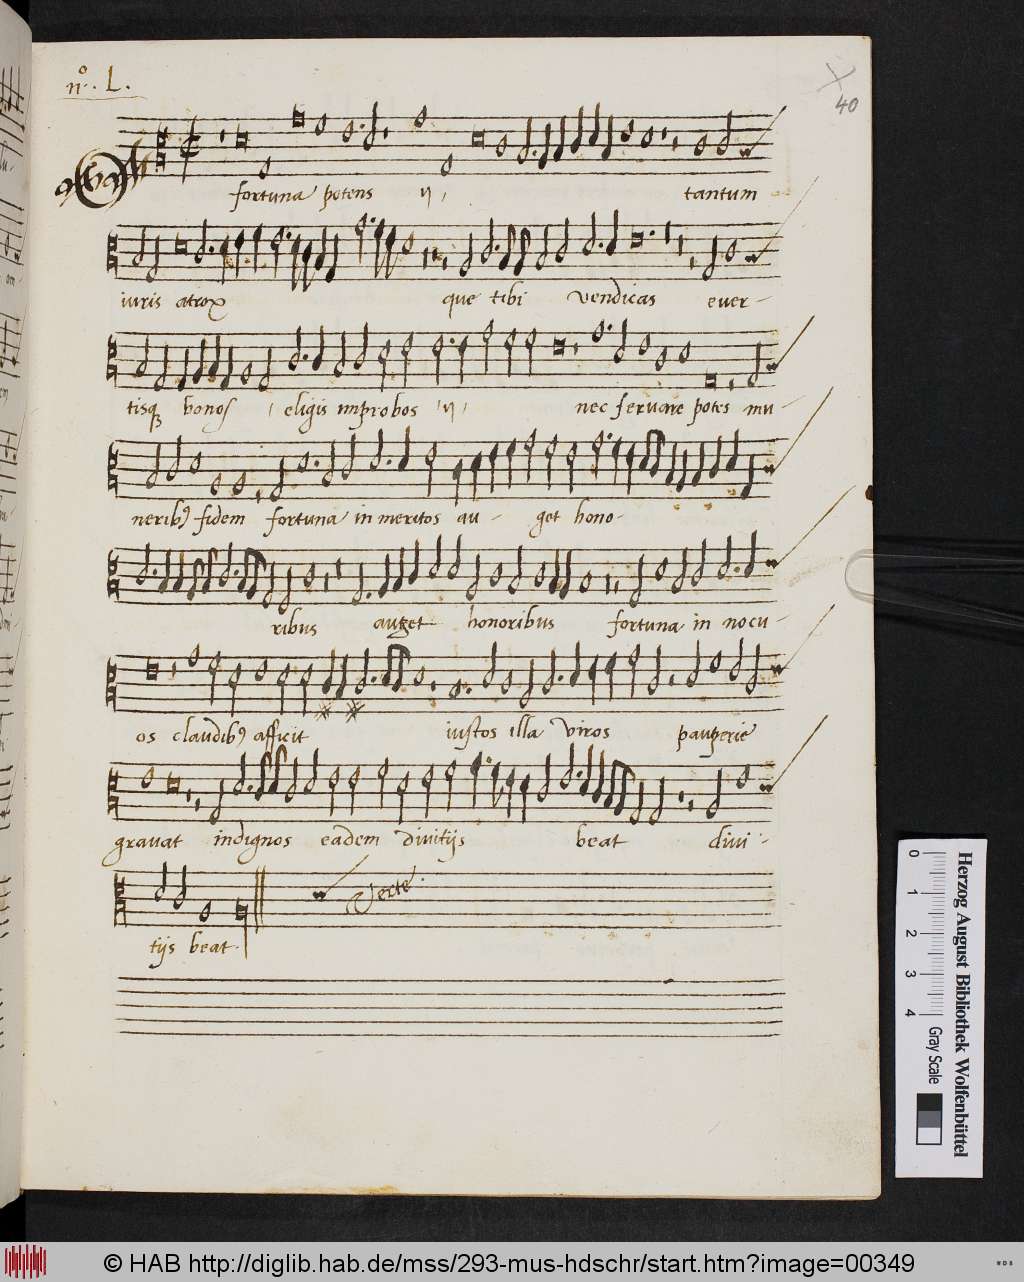 nº. L.
40
Quã
fortuna potens ij, tantum
iuris atrox que tibi vendicas ever-
tisq bonos, eligis improbos, ij, nec seruare potes mu-
nerib9 fidem fortuna in meritos au- get hono-
ribus auget honoribus fortuna in nocu-
os claudib9 afficit iustos illa viros pauperie
gravat indignos eadem divitijs beat divi-
tijs beat.
Verte.
Herzog August Bibliothek Wolfenbüttel
0 1 2 3 4 Gray Scale
© HAB http://diglib.hab.de/mss/293-mus-hdschr/start.htm?image=00349